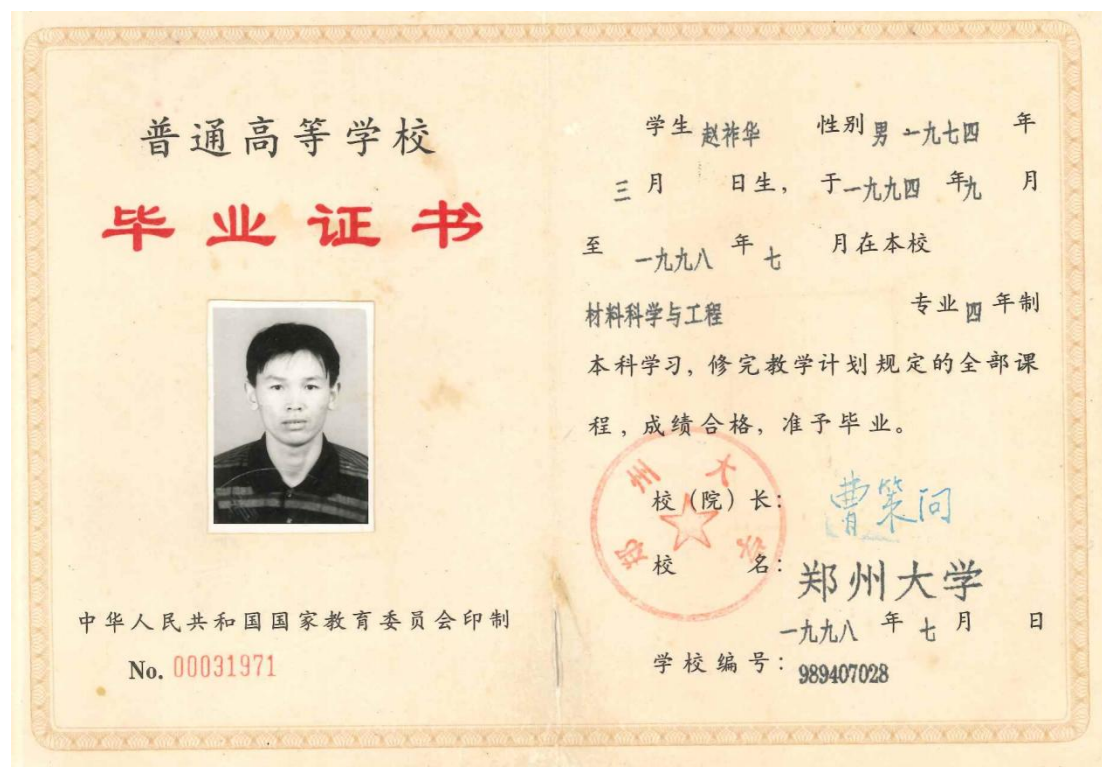 普通高等学校
毕业证书
中华人民共和国国家教育委员会印制
No. 00031971
学生 赵祚华 性别 男 一九七四 年
三 月 日生，于 一九九四 年 九 月
至 一九九八 年 七 月在本校
材料科学与工程 专业 四 年制
本科学习，修完教学计划规定的全部课
程，成绩合格，准予毕业。
校（院）长：曹策问
校 名：郑州大学
一九九八 年 七 月 日
学校编号：989407028
郑州大学